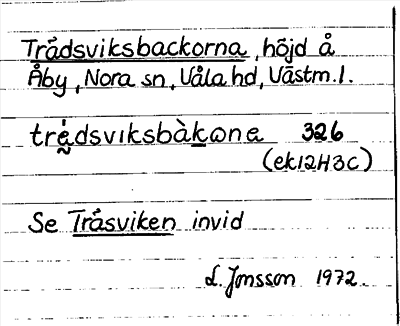 Trådsviksbackorna, höjd å
Åby, Nora sn, Våla hd, Västm. l.
trå̀dsviksbàkωna 326
(ek12H3C)
Se Tråsviken invid
L. Jonsson 1972.